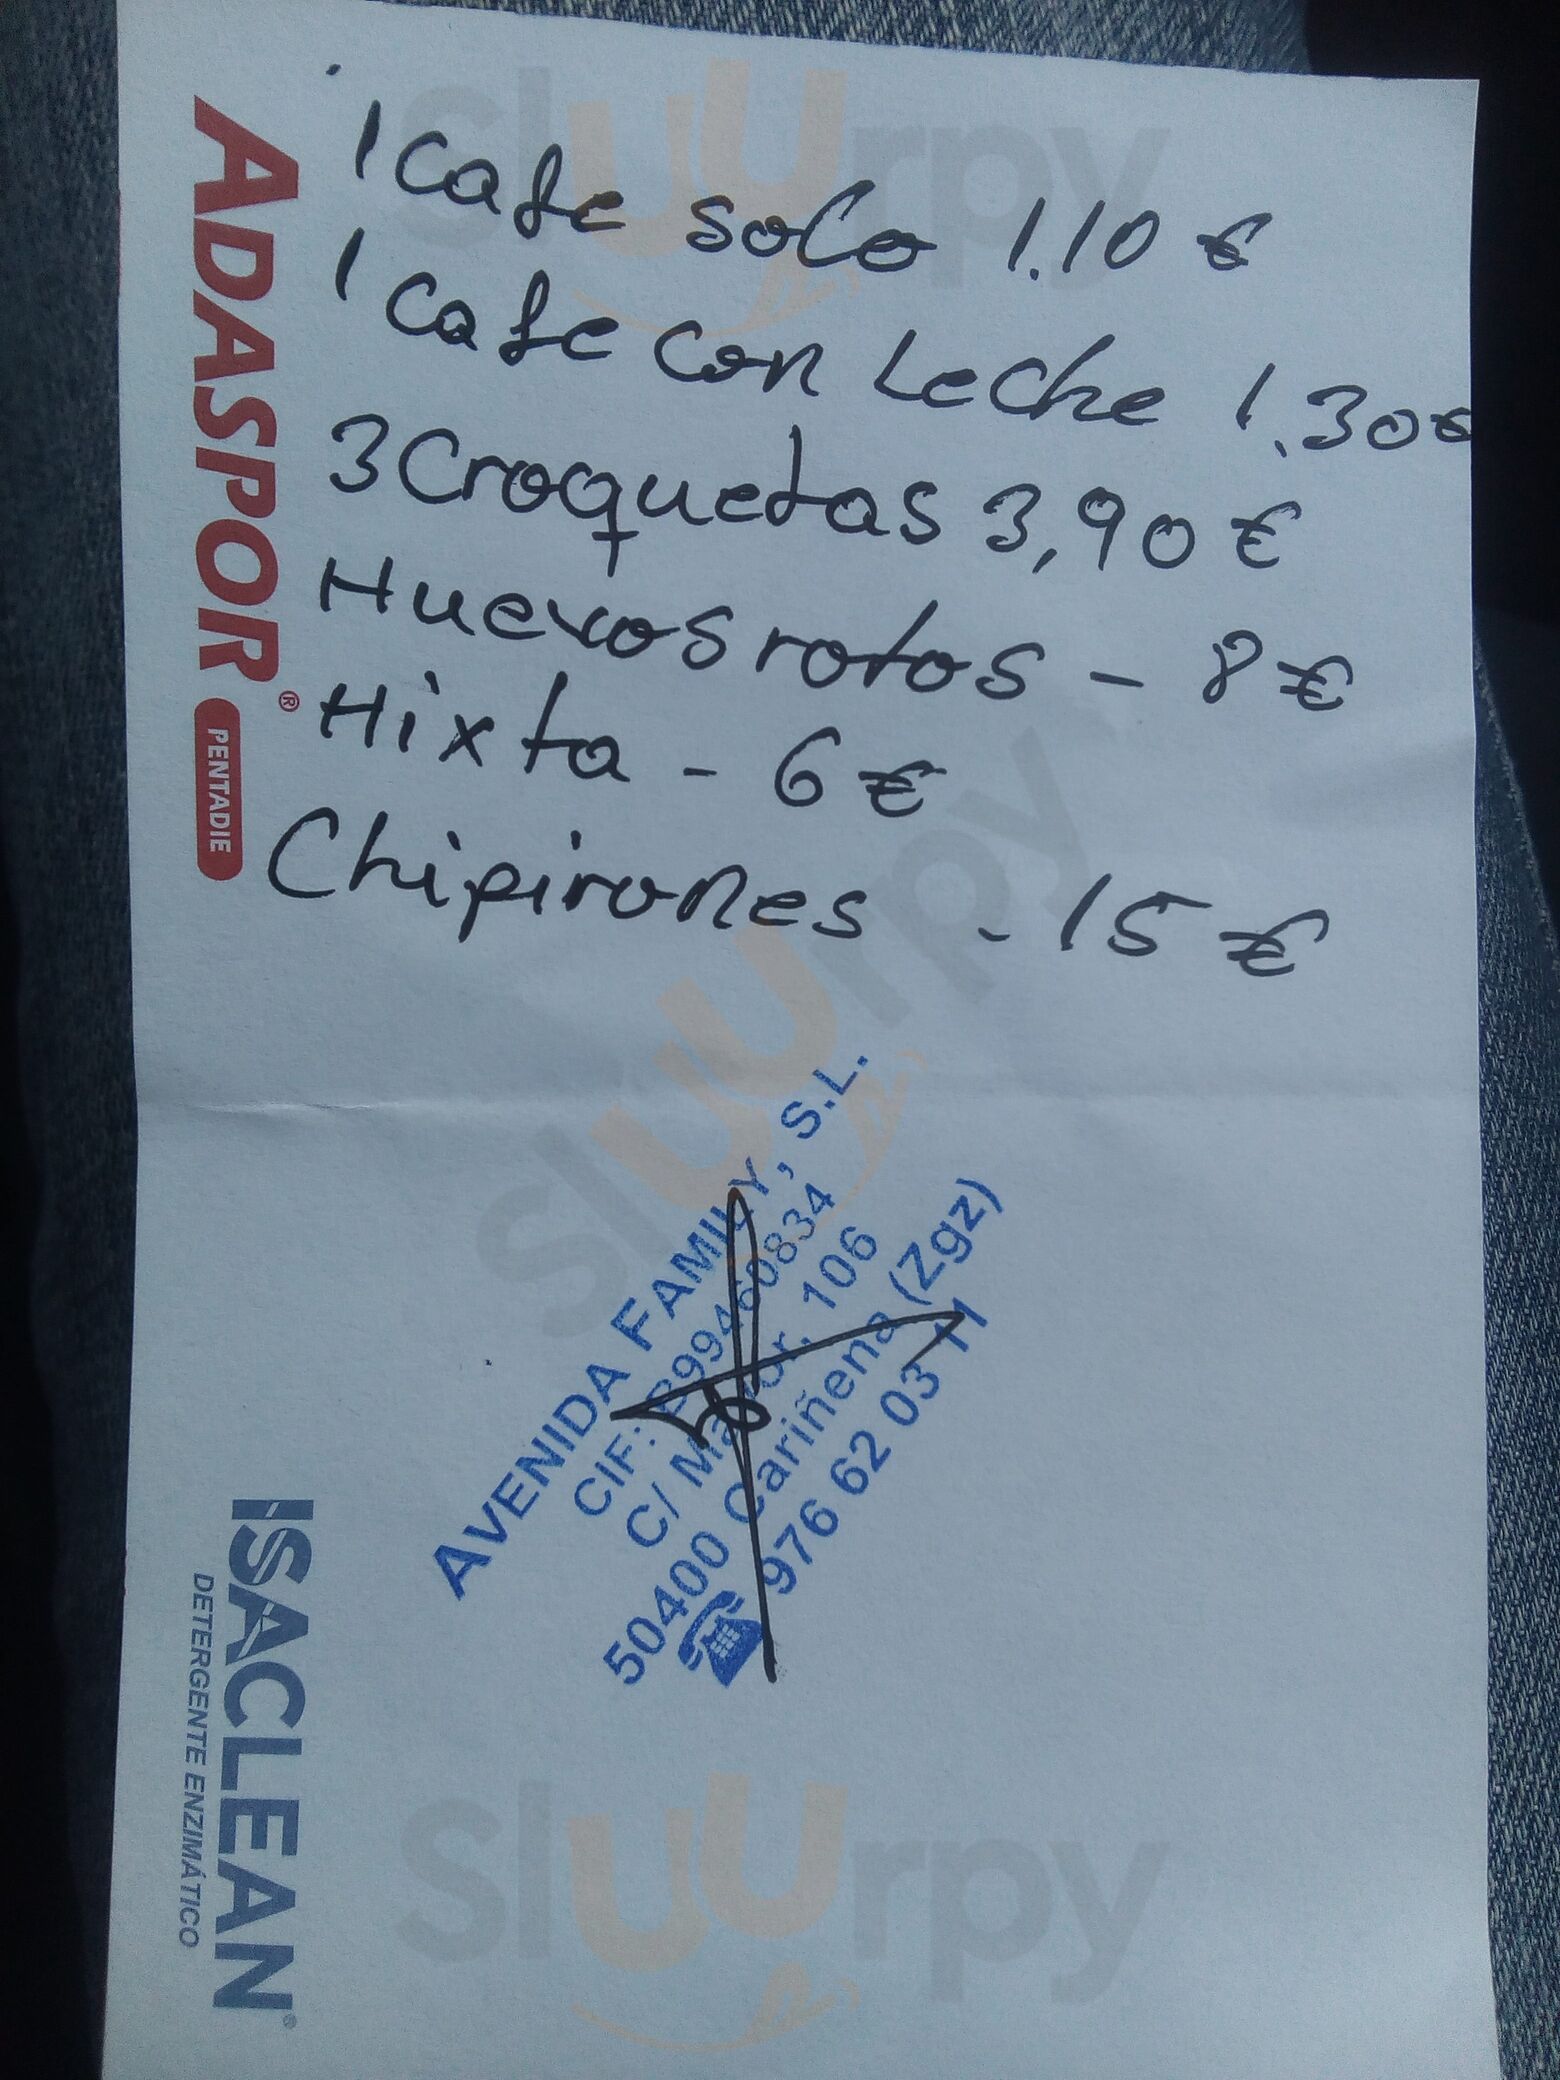 1 Cafe solo 1.10 €
1 Cafe con Leche 1.30€
3 Croquetas 3,90 €
Huevos rotos - 8 €
Mixta - 6 €
Chipirones - 15 €
ADASPOR®
PENTADIE
AVENIDA FAMILY, S.L.
CIF: B99460834
C/ Mayor, 106
50400 Cariñena (Zgz)
☎ 976 62 03 11
ISACLEAN®
DETERGENTE ENZIMÁTICO
Sluurpy
Sluurpy
Sluurpy